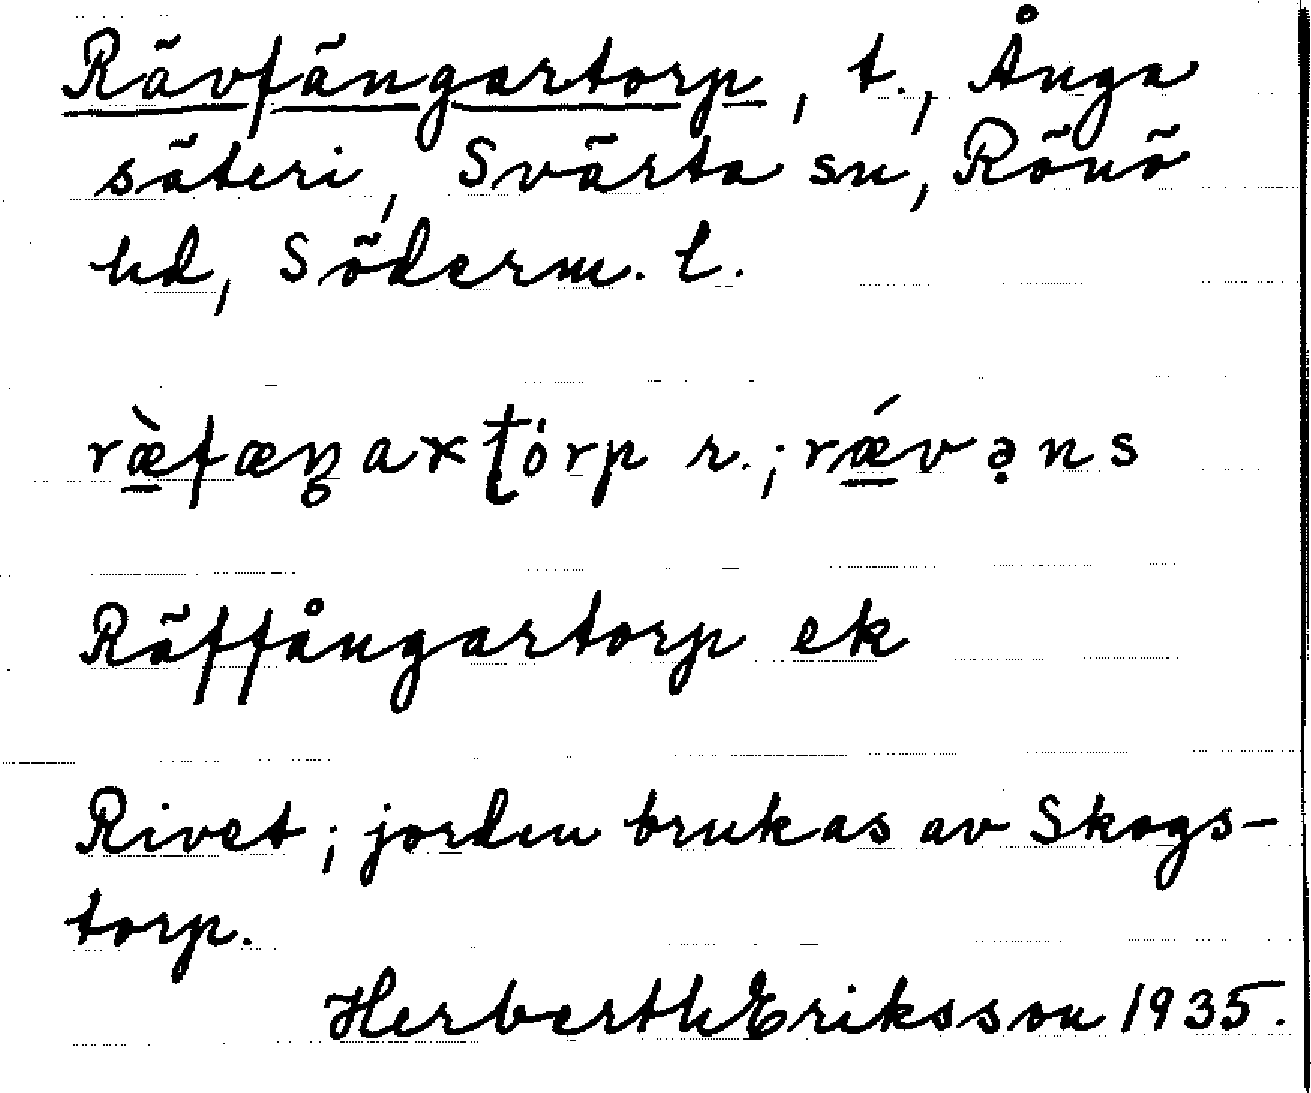 Rävfängartorp, t., Ånga
säteri, Svärta sn, Rönö
hd, Söderm. l.
ræ̀fæŋaxtórp r.; rǽvə̣ns
Räffångartorp ek
Rivet; jorden brukas av Skogs-
torp.
Herberth Eriksson 1935.